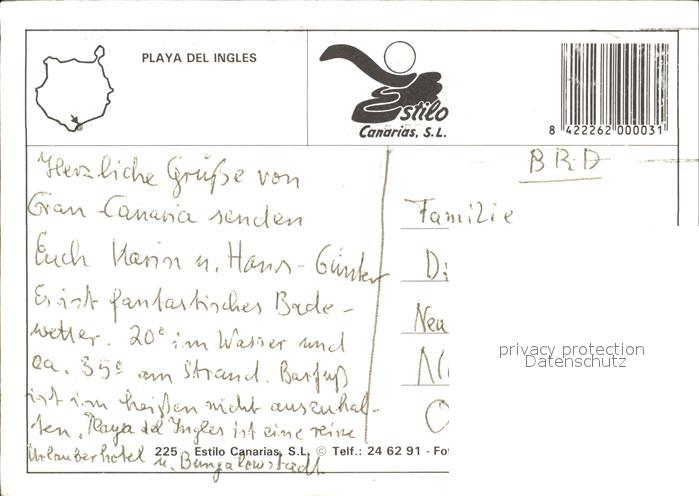 PLAYA DEL INGLES
Estilo
Canarias, S.L.
8 422262 000031
BRD
Herzliche Grüße von
Gran Canaria senden
Euch Karin u. Hans-Günter
Es ist fantastisches Bade-
wetter. 20° im Wasser und
ca. 35° am Strand. Barfuß
ist im heißen nicht auszuhal-
ten. Playa del Ingles ist eine reine
Urlauberhotel u. Bungalowstadt
Familie
Di
Neu
privacy protection
Datenschutz
225 Estilo Canarias, S.L. © Telf.: 24 62 91 - Fo